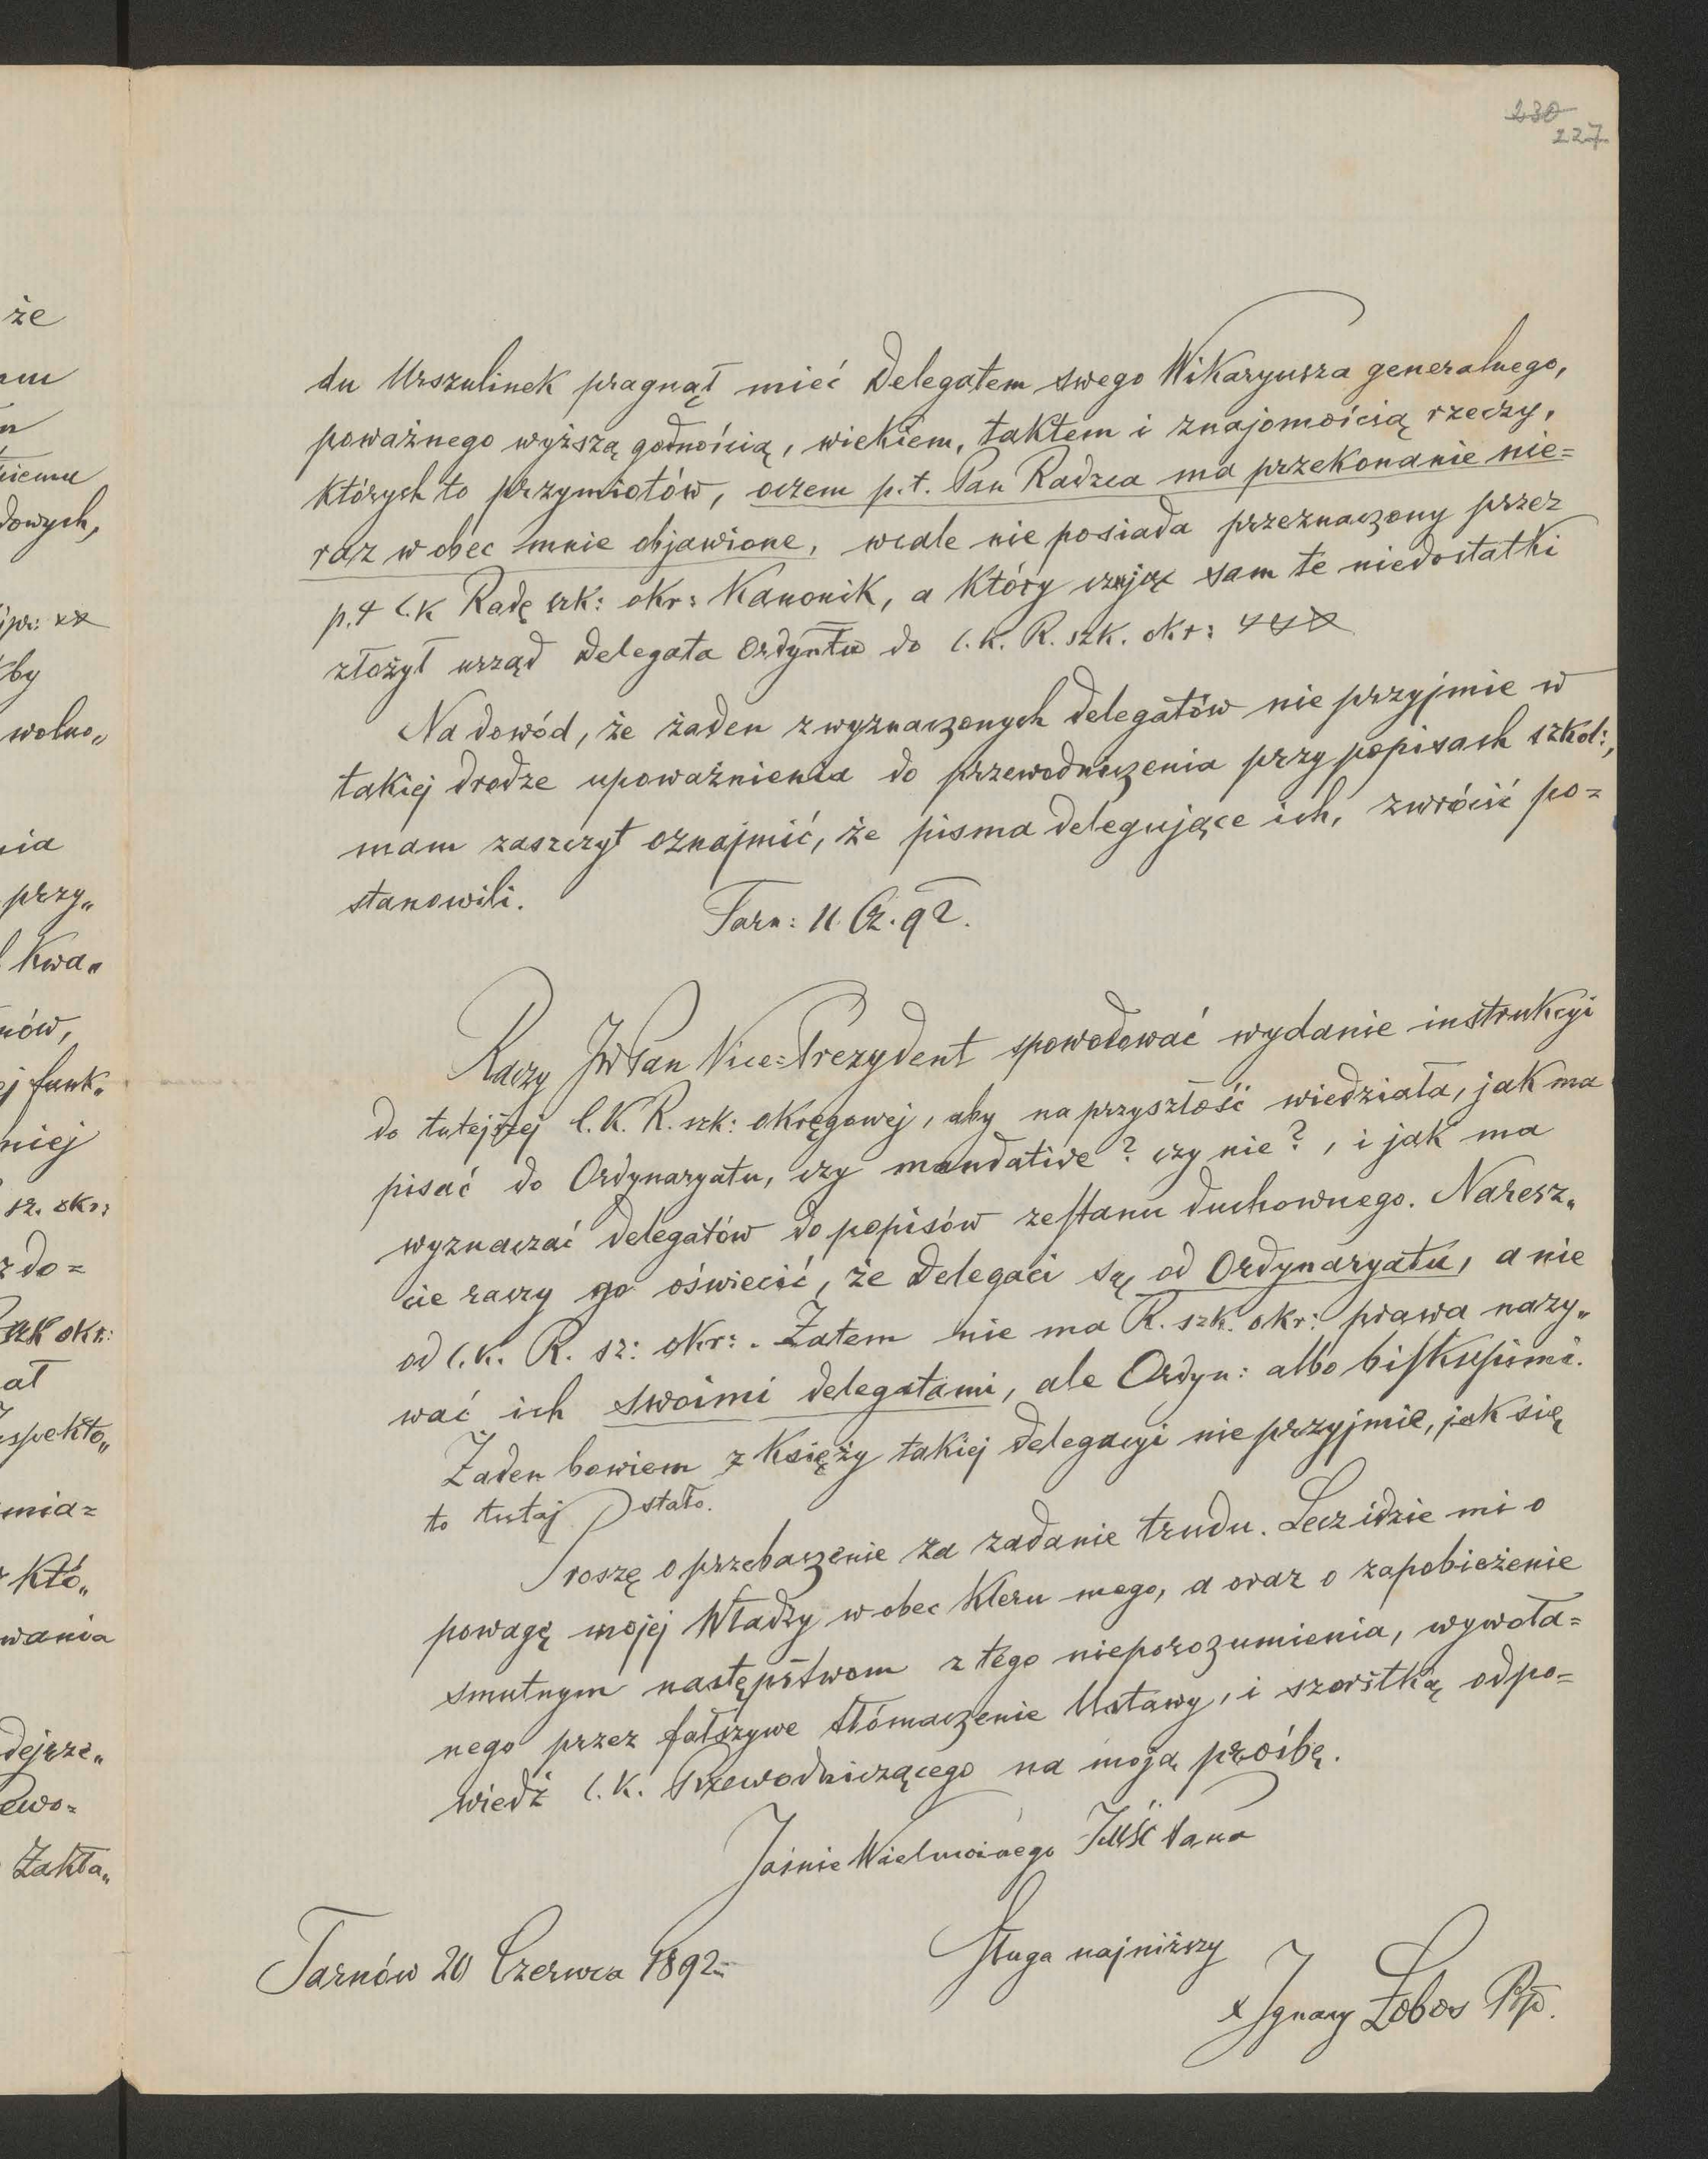 230
227
że
dowych,
by
wolno„
nia
przy„
Kwa„
nów,
j funk„
niej
sz. okr:
do=
szk okr:
at
spekto„
mia=
Któ„
wania
dejrze„
ewo=
Zakła„
du Urszulinek pragnął mieć Delegatem swego Wikaryusza generalnego,
poważnego wyższą godnością, wiekiem, taktem i znajomością rzeczy,
których to przymiotów, oczem p.t. Pan Radzca ma przekonanie nie=
raz wobec mnie objawione, wcale nie posiada przeznaczony przez
p.t c.k Radę szk: okr: Kanonik, a Który czując sam te niedostatki
złożył urząd Delegata Ordyntu do c.k. R. szk. okr:
Na dowód, że żaden z wyznaczonych delegatów nie przyjmie w
takiej drodze upoważnienia do przewodniczenia przy popisach szkol:,
mam zaszczyt oznajmić, że pisma delegujące ich, zwrócić po=
stanowili.
Tarn: 11. Cz. 92.
Raczy JWPan Vice=Prezydent spowodować wydanie instrukcyi
do tutejszej C.K. R. szk: okręgowej, aby na przyszłość wiedziała, jak ma
pisać do Ordynaryatu, czy mandative? czy nie?, i jak ma
wyznaczać delegatów do popisów ze stanu duchownego. Naresz„
cie raczy go oświecić, że Delegaci są od Ordynaryatu, a nie
od c.k. R. sz: okr:. Zatem nie ma R. szk. okr: prawa nazy„
wać ich swoimi delegatami, ale Ordyn: albo biskupimi.
Żaden bowiem z Księży takiej delegacyi nie przyjmie, jak się
to tutaj stało.
Proszę o przebaczenie za zadanie trudu. Lecz idzie mi o
powagę mojej Władzy wobec Kleru mego, a oraz o zapobieżenie
smutnym następstwom z tego nieporozumienia, wywoła=
nego przez fałszywe tłómaczenie Ustawy, i szorstką odpo=
wiedź c.k. Przewodniczącego na moją prośbę.
Jaśnie Wielmożnego JMść Pana
Sługa najniższy
Tarnów 20 Czerwca 1892
x Ignacy Łobos Bp.